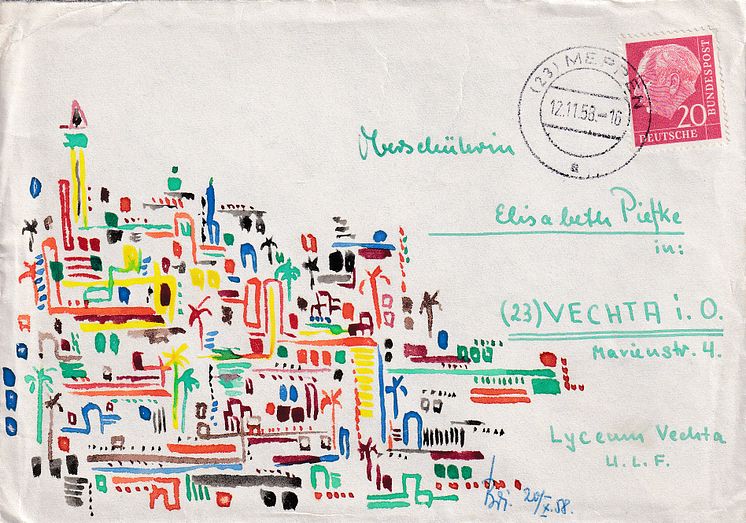 (23) MEPPEN
12.11.58.-16
a
20
DEUTSCHE
BUNDESPOST
Oberschülerin
Elisabeth Piefke
in:
(23) VECHTA i. O.
Marienstr. 4.
Lyceum Vechta
U. L. F.
20/X.58.